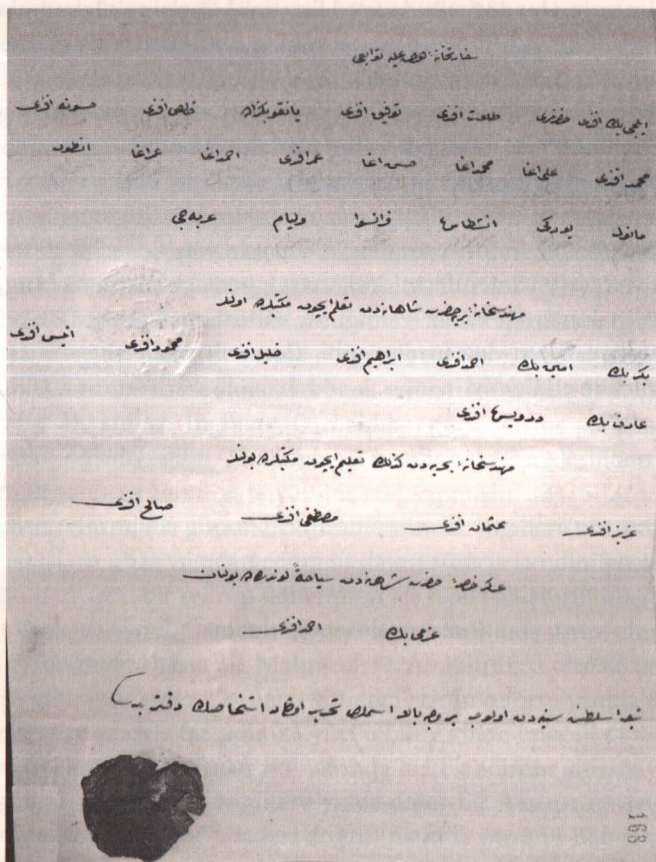 ایلچی بك افندی حضرتلری طلعت افندی توفیق افندی یانقو بكزاده فهمی افندی حسونه افندی
محمد افندی علی اغا محمد اغا حسن اغا عمر افندی احمد اغا عمر اغا انطون
مانول یوركی فرانسوا ولیام عربه جی
مهندسخانهٔ بریِ حضرت شاهانه دن تعلم ایچون مكتبلرده اولنلر
بكر بك امین بك احمد افندی ابراهیم افندی خلیل افندی محمود افندی انیس افندی
عارف بك درویش افندی
مهندسخانهٔ بحریه دن كذلك تعلم ایچون مكتبلرده بولنلر
عزیز افندی عثمان افندی مصطفی افندی صالح افندی
حضرت شاهانه دن سیاحة لوندره ده بولنان
عزمی بك احمد افندی
تبعهٔ سلطنت سنیه دن اولوب بر وجه بالا اسملری تحریر اولنان اشخاصك دفتریدر
168